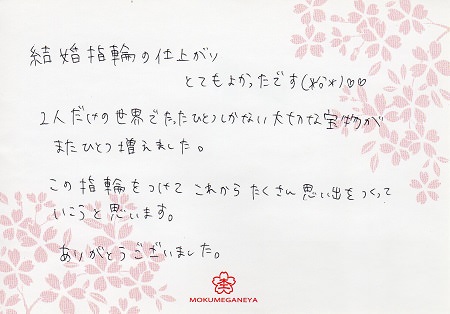 結婚指輪の仕上がり
とてもよかったです(*^o^*)♡♡
2人だけの世界でたったひとつしかない大切な宝物が
またひとつ増えました。
この指輪をつけて これから たくさん 思い出をつくって
いこうと思います。
ありがとうございました。
MOKUMEGANEYA